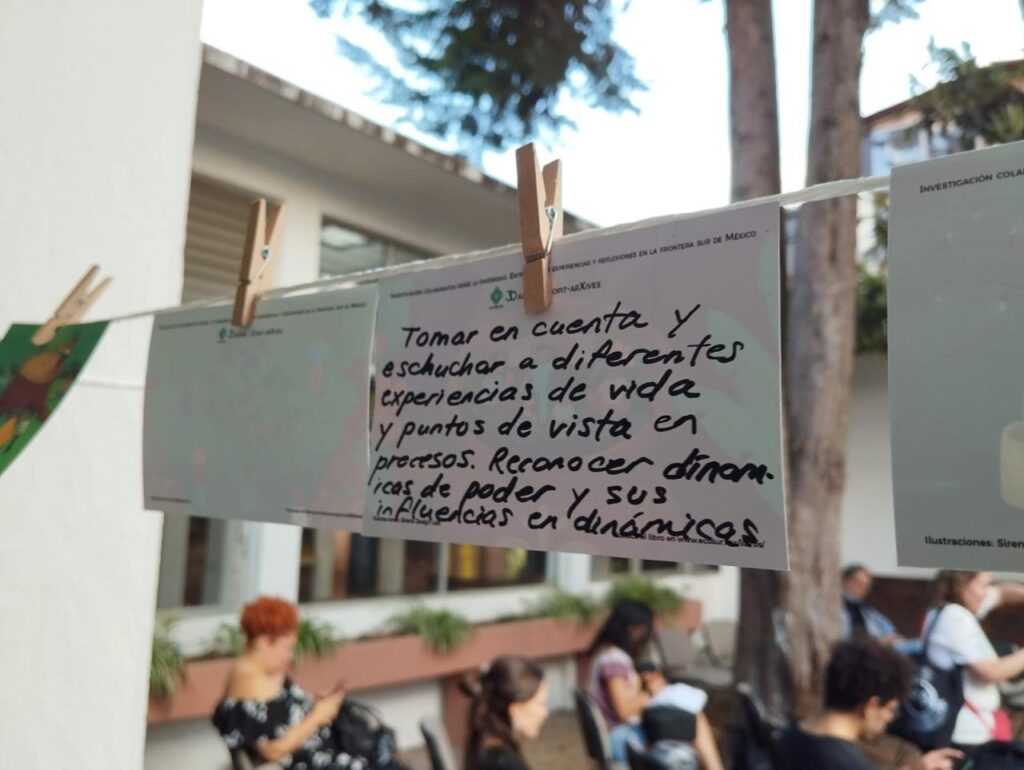 INVESTIGACIÓN COLABORATIVA DESDE LA DIVERSIDAD. EXPERIENCIAS Y REFLEXIONES EN LA FRONTERA SUR DE MÉXICO
Tomar en cuenta y
eschuchar a diferentes
experiencias de vida
y puntos de vista en
procesos. Reconocer dinám-
icas de poder y sus
influencias en dinámicas
libro en
INVESTIGACIÓN
ILUSTRACIONES: